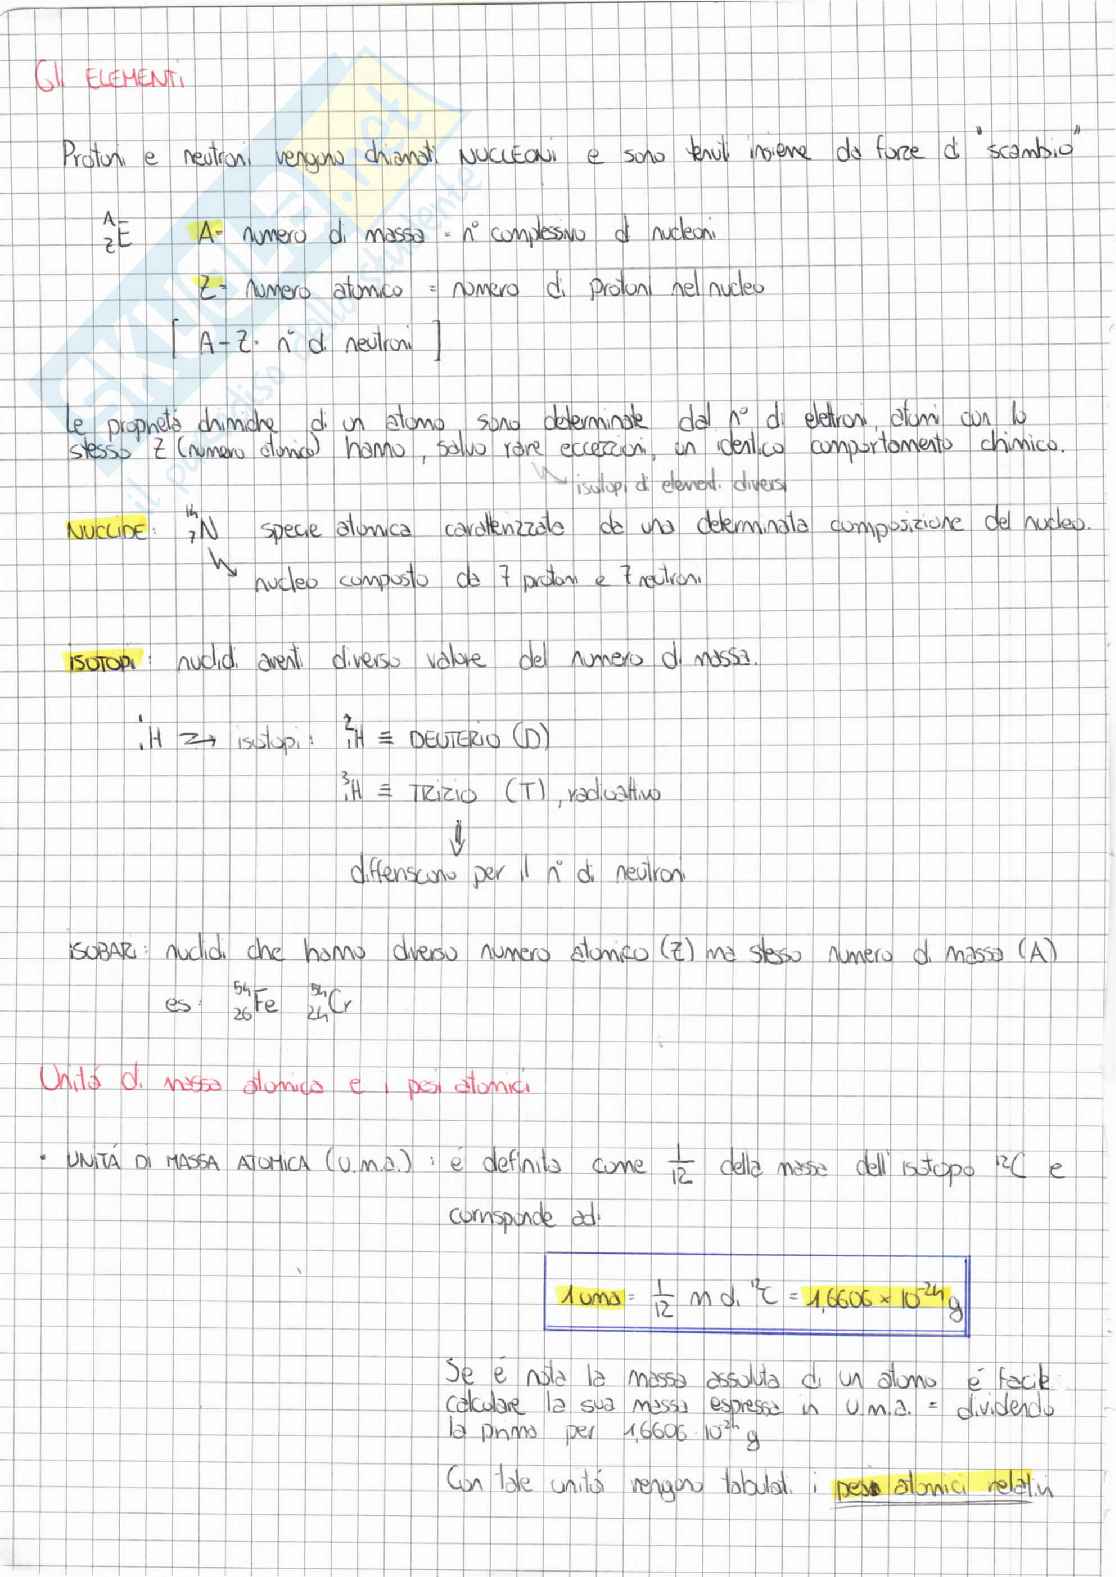 Gli ELEMENTI
Protoni e neutroni vengono chiamati NUCLEONI e sono tenuti insieme da forze di "scambio"
ᴬ_Z E A = numero di massa = n° complessivo di nucleoni
Z = numero atomico = numero di protoni nel nucleo
[ A-Z = n° di neutroni ]
Le proprietà chimiche di un atomo sono determinate dal n° di elettroni, atomi con lo
stesso Z (numero atomico) hanno, salvo rare eccezioni, un identico comportamento chimico.
↳ isotopi di elementi diversi
NUCLIDE: ¹⁴₇N specie atomica caratterizzata da una determinata composizione del nucleo.
↳ nucleo composto da 7 protoni e 7 neutroni
ISOTOPI: nuclidi aventi diverso valore del numero di massa.
¹₁H → isotopi: ²₁H ≡ DEUTERIO (D)
³₁H ≡ TRIZIO (T), radioattivo
⇓
differiscono per il n° di neutroni
ISOBARI: nuclidi che hanno diverso numero atomico (Z) ma stesso numero di massa (A)
es: ⁵⁴₂₆Fe ⁵⁴₂₄Cr
Unità di massa atomica e i pesi atomici
• UNITÀ DI MASSA ATOMICA (U.m.a.): è definita come 1/12 della massa dell'isotopo ¹²C e
corrisponde ad:
1 uma = 1/12 m di ¹²C = 1,6606 × 10⁻²⁴ g
Se è nota la massa assoluta di un atomo è facile
calcolare la sua massa espressa in U.m.a. = dividendo
la prima per 1,6606 · 10⁻²⁴ g
Con tale unità vengono tabulati i pesi atomici relativi
SKUOLA.net
il paradiso dello studente